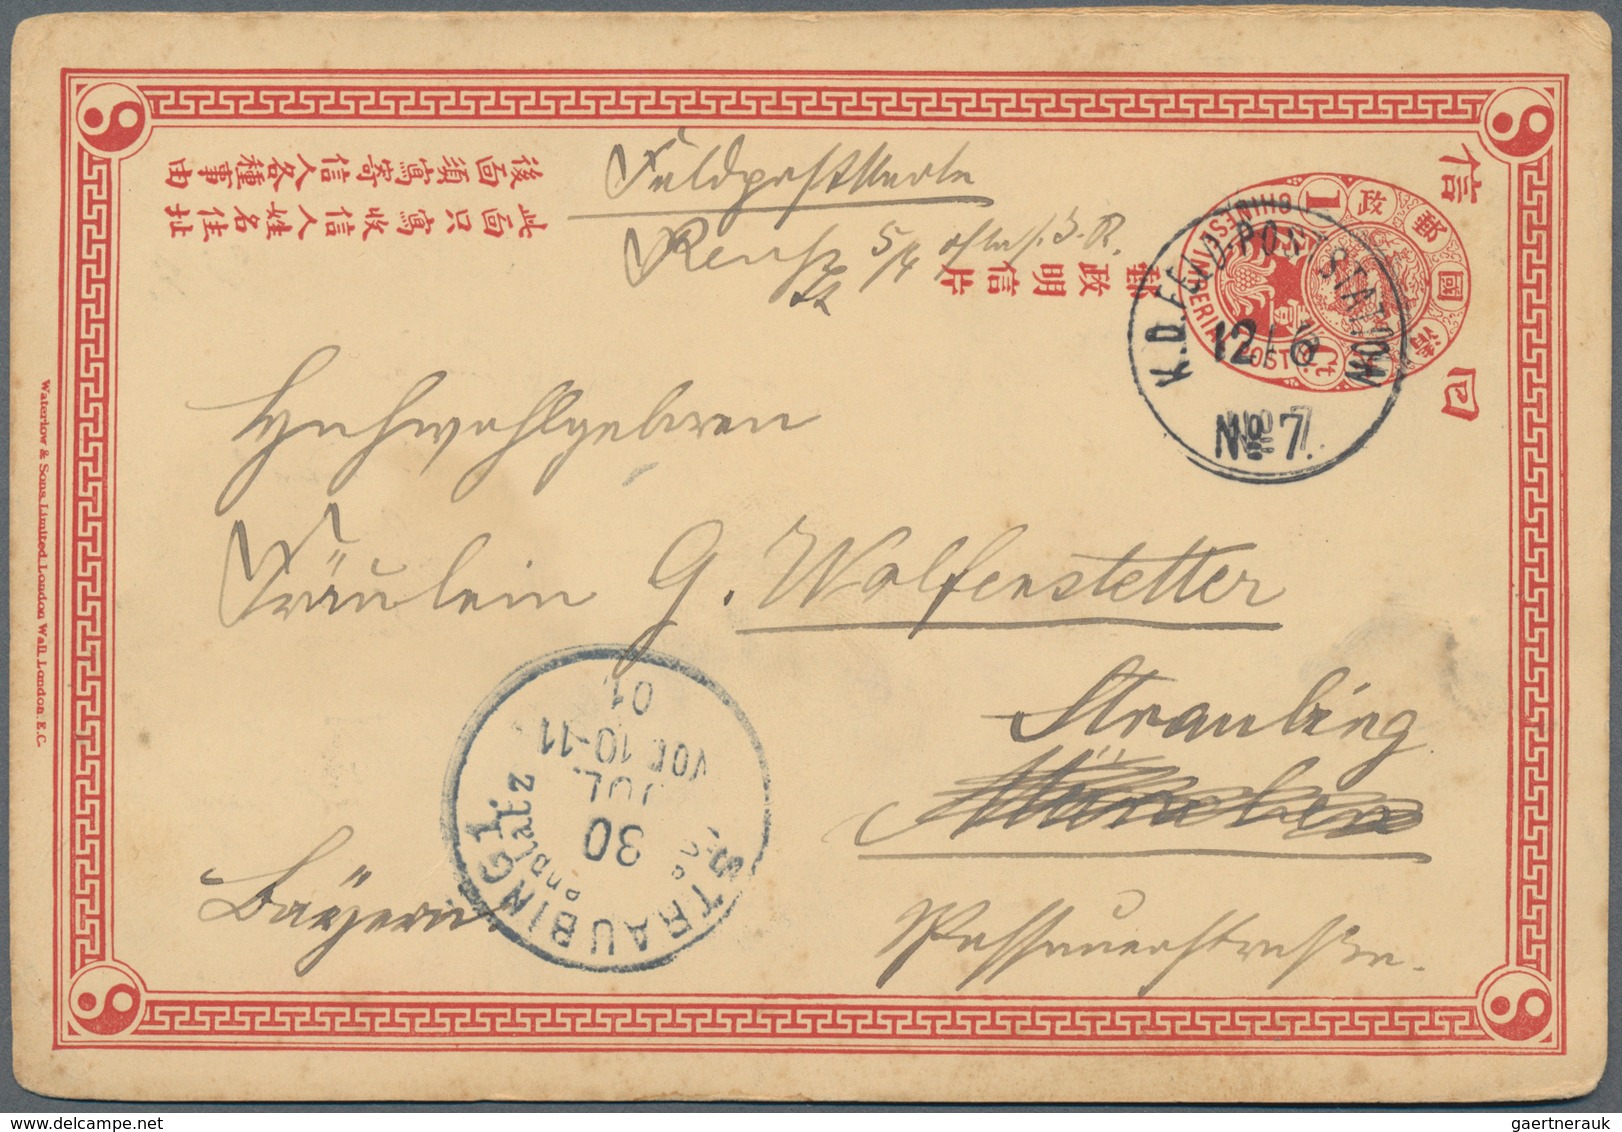 Feldpostkarte
後面須寫寄信人各種事由
此面只寫收信人姓名住址
郵政明信片
信
回
大清國郵政
CHINESE IMPERIAL POST
1
K.D. FELD-POSTSTATION
12/6
No 7.
Hochwohlgeboren
Fräulein G. Wolfenstetter
Straubing
München
Passauerstraße.
Bayern
STRAUBING 1.
30
JUL.
VOR 10-11
01
Waterlow & Sons Limited, London Wall, London. E.C.
gaertnerauk